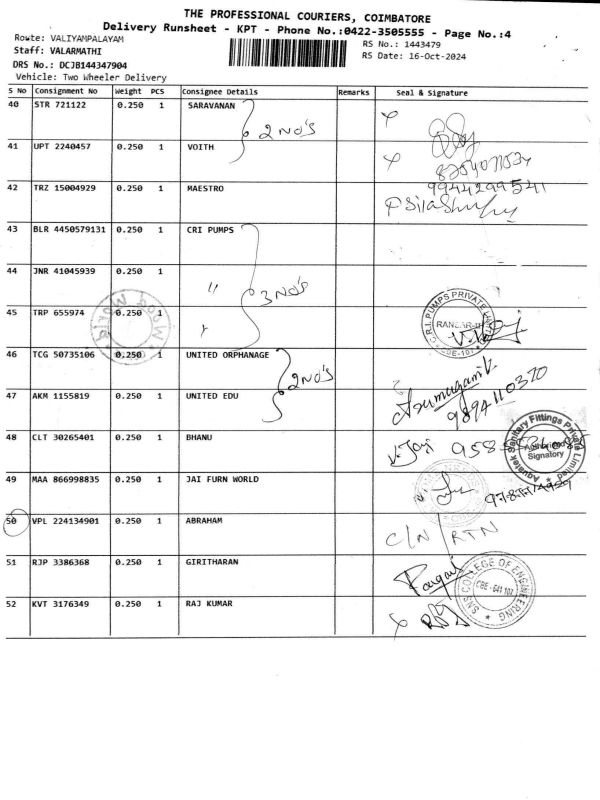 THE PROFESSIONAL COURIERS, COIMBATORE
Delivery Runsheet - KPT - Phone No.:0422-3505555 - Page No.:4
Route: VALIYAMPALAYAM
RS No.: 1443479
Staff: VALARMATHI
RS Date: 16-Oct-2024
DRS No.: DCJB144347904
Vehicle: Two Wheeler Delivery
S No Consignment No Weight PCS Consignee Details Remarks Seal & Signature
40 STR 721122 0.250 1 SARAVANAN
2 NO'S
41 UPT 2240457 0.250 1 VOITH
42 TRZ 15004929 0.250 1 MAESTRO
9944299541
43 BLR 4450579131 0.250 1 CRI PUMPS
44 JNR 41045939 0.250 1 "
3 NO'S
45 TRP 655974 0.250 1 "
C.R.I. PUMPS PRIVATE
46 TCG 50735106 0.250 1 UNITED ORPHANAGE
2 NO'S
47 AKM 1155819 0.250 1 UNITED EDU
9894110320
48 CLT 30265401 0.250 1 BHANU
V. Jayi
Aquatek Sanitary Fittings Private Limited
Authorised Signatory
49 MAA 866998835 0.250 1 JAI FURN WORLD
50 VPL 224134901 0.250 1 ABRAHAM
C/N RTN
51 RJP 3386368 0.250 1 GIRITHARAN
SNS COLLEGE OF ENGINEERING
CBE - 641 107
52 KVT 3176349 0.250 1 RAJ KUMAR